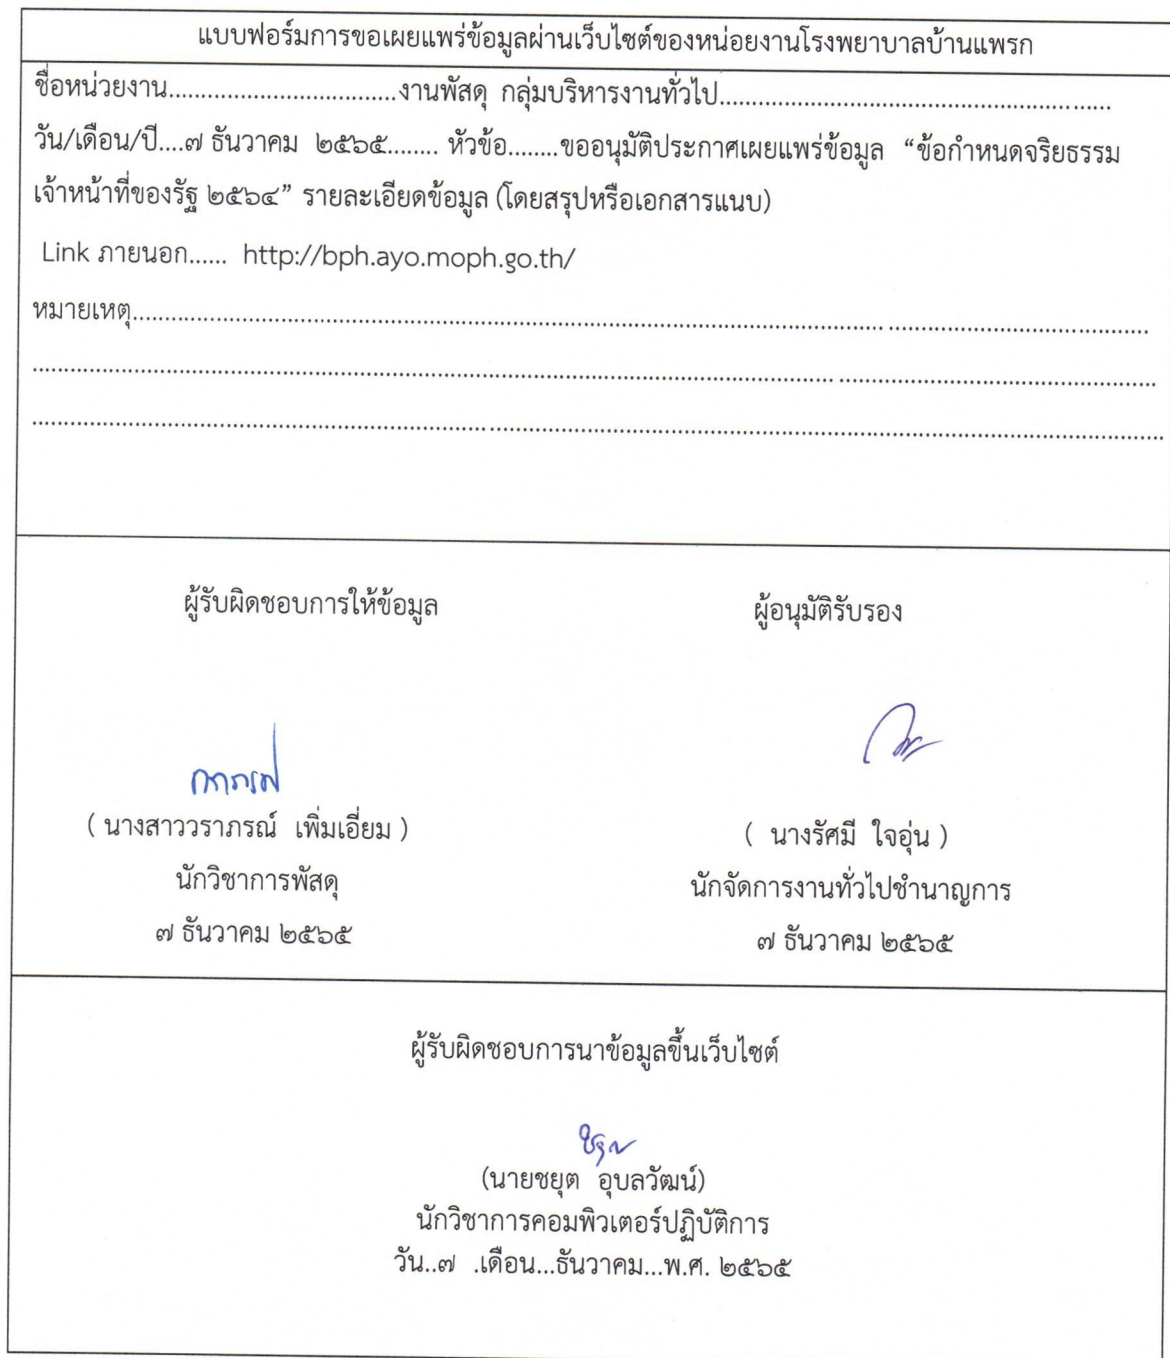 แบบฟอร์มการขอเผยแพร่ข้อมูลผ่านเว็บไซต์ของหน่อยงานโรงพยาบาลบ้านแพรก
ชื่อหน่วยงาน...................................งานพัสดุ กลุ่มบริหารงานทั่วไป............................................................
วัน/เดือน/ปี....๗ ธันวาคม ๒๕๖๕........ หัวข้อ........ขออนุมัติประกาศเผยแพร่ข้อมูล “ข้อกำหนดจริยธรรม
เจ้าหน้าที่ของรัฐ ๒๕๖๔” รายละเอียดข้อมูล (โดยสรุปหรือเอกสารแนบ)
Link ภายนอก...... http://bph.ayo.moph.go.th/
หมายเหตุ..........................................................................................................................................
ผู้รับผิดชอบการให้ข้อมูล ผู้อนุมัติรับรอง
( นางสาววราภรณ์ เพิ่มเอี่ยม ) ( นางรัศมี ใจอุ่น )
นักวิชาการพัสดุ นักจัดการงานทั่วไปชำนาญการ
๗ ธันวาคม ๒๕๖๕ ๗ ธันวาคม ๒๕๖๕
ผู้รับผิดชอบการนาข้อมูลขึ้นเว็บไซต์
(นายชยุต อุบลวัฒน์)
นักวิชาการคอมพิวเตอร์ปฏิบัติการ
วัน..๗ .เดือน...ธันวาคม...พ.ศ. ๒๕๖๕